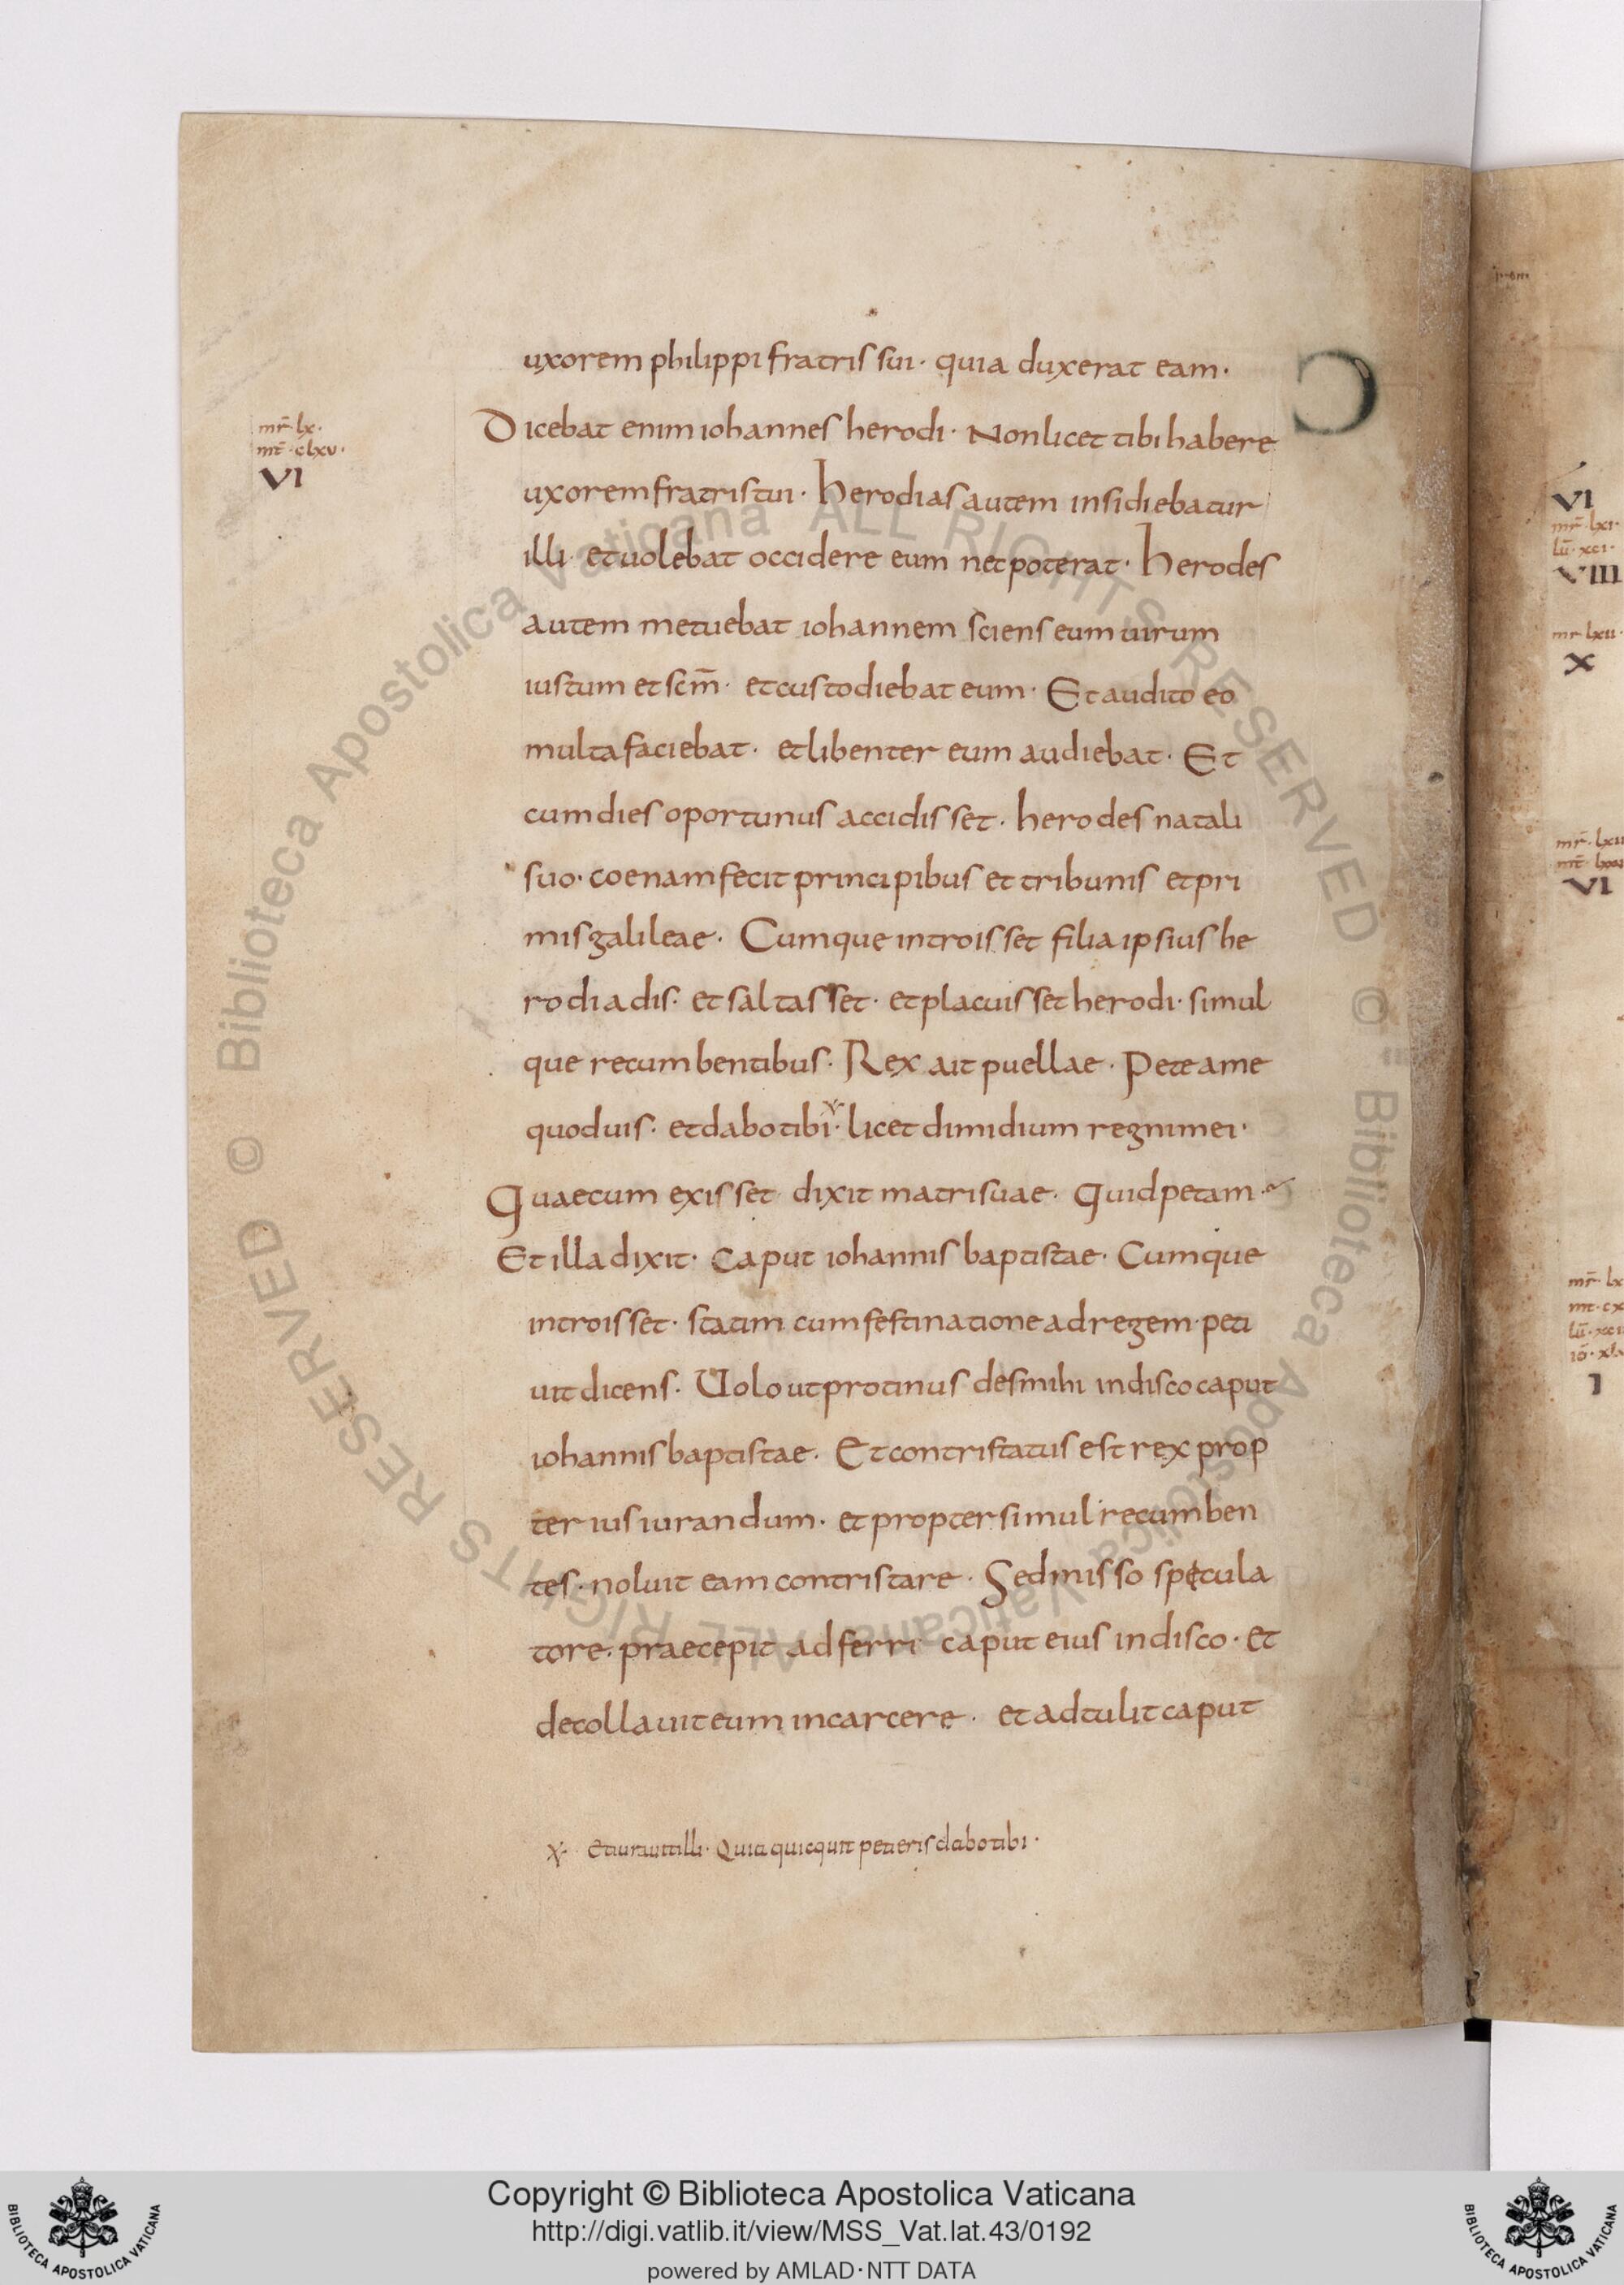 uxorem philippi fratris sui· quia duxerat eam·
mr̄ lx·
mt̄ clxv·
VI
Dicebat enim iohannes herodi· Non licet tibi habere
uxorem fratris tui· herodias autem insidiebatur
illi· et uolebat occidere eum nec poterat· herodes
autem metuebat iohannem sciens eum uirum
iustum et scm̄· et custodiebat eum· Et audito eo
multa faciebat· et libenter eum audiebat· Et
cum dies oportunus accidisset· herodes natali
suo· coenam fecit principibus et tribunis et pri
mis galileae· Cumque introisset filia ipsius he
rodiadis· et saltasset· et placuisset herodi· simul
que recumbentibus· Rex ait puellae· Pete a me
quod uis· et dabo tibi· licet dimidium regni mei·
Quae cum exisset dixit matri suae· Quid petam·
Et illa dixit· Caput iohannis baptistae· Cumque
introisset· statim cum festinatione ad regem· peti
uit dicens· Uolo ut protinus des mihi in disco caput
iohannis baptistae· Et contristatus est rex prop
ter ius iurandum· et propter simul recumben
tes· noluit eam contristare· Sed misso specula
tore· praecepit adferri caput eius in disco· et
decollauit eum in carcere· et adtulit caput
et iurauit illi· Quia quicquit petieris dabo tibi·
VI
mr̄ lxi·
lū xci·
VIII
mr lxii·
X
VI
I
© Biblioteca Apostolica Vaticana ALL RIGHTS RESERVED © Biblioteca Apostolica Vaticana ALL RIGHTS RESERVED
BIBLIOTECA APOSTOLICA VATICANA
Copyright © Biblioteca Apostolica Vaticana
http://digi.vatlib.it/view/MSS_Vat.lat.43/0192
powered by AMLAD·NTT DATA
BIBLIOTECA APOSTOLICA VATICANA